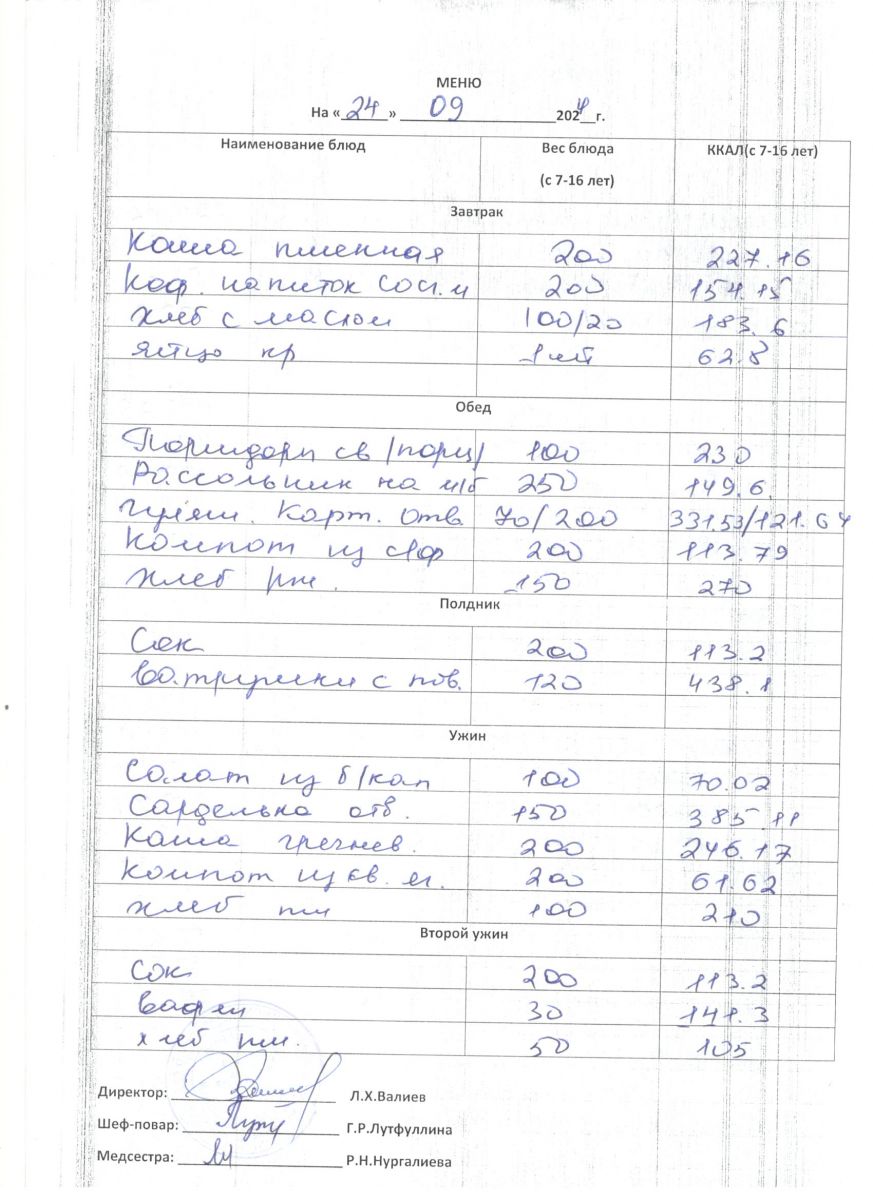 МЕНЮ
На « 24 » 09 2024 г.
Наименование блюд Вес блюда (с 7-16 лет) ККАЛ(с 7-16 лет)
Завтрак
Каша пшенная 200 227.16
Коф. напиток со сг. м 200 154.15
Хлеб с маслом 100/20 183.6
Яйцо кр 1шт 62.8
Обед
Помидоры св /порц/ 100 23.0
Рассольник на м/б 250 149.6
Гуляш. Карт. Отв. 70/200 331.53/121.64
Компот из с/ф 200 113.79
Хлеб рж. 150 270
Полдник
Сок 200 113.2
Ватрушки с пов. 120 438.1
Ужин
Салат из б/кап 100 70.02
Сарделька отв. 150 385.11
Каша гречнев. 200 246.17
Компот из св. яг. 200 61.62
Хлеб пш 100 210
Второй ужин
Сок 200 113.2
Вафли 30 141.3
Хлеб пш. 50 105
Директор: Л.Х.Валиев
Шеф-повар: Г.Р.Лутфуллина
Медсестра: Р.Н.Нургалиева